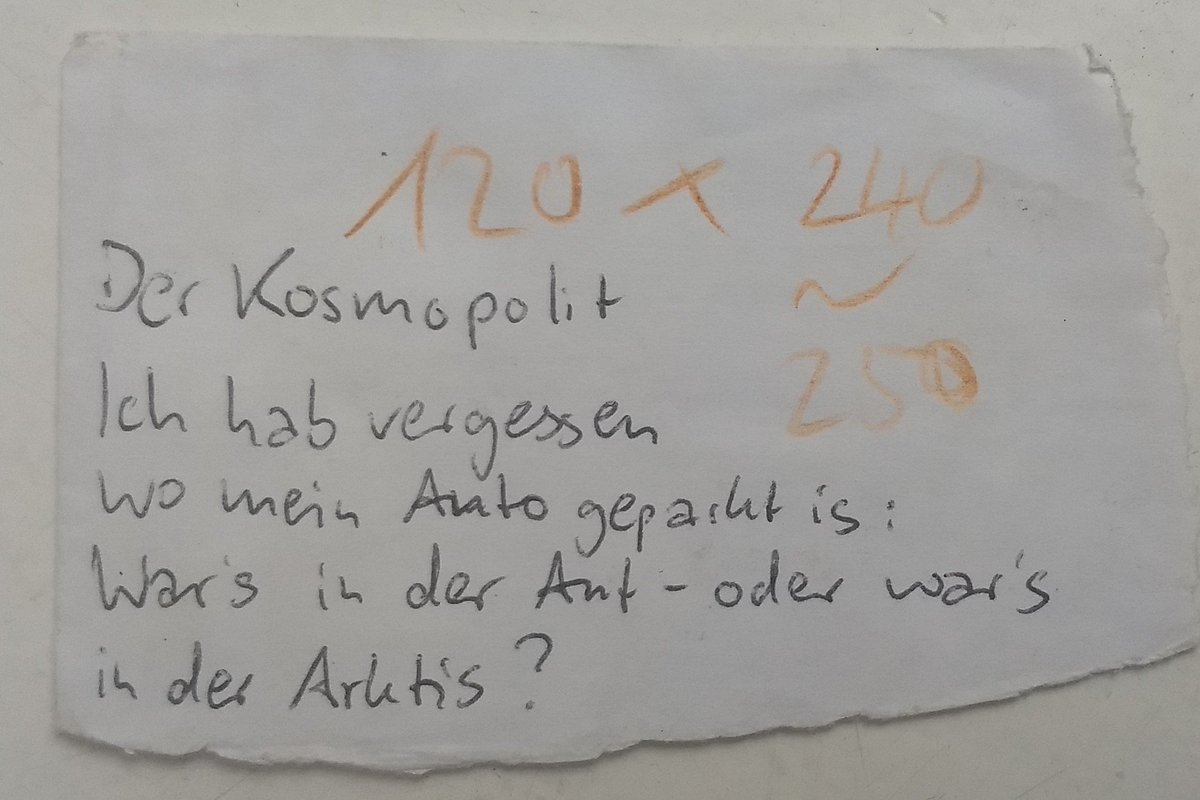 120 x 240
~
250
Der Kosmopolit
Ich hab vergessen
wo mein Auto geparkt is:
War's in der Ant - oder war's
in der Arktis?